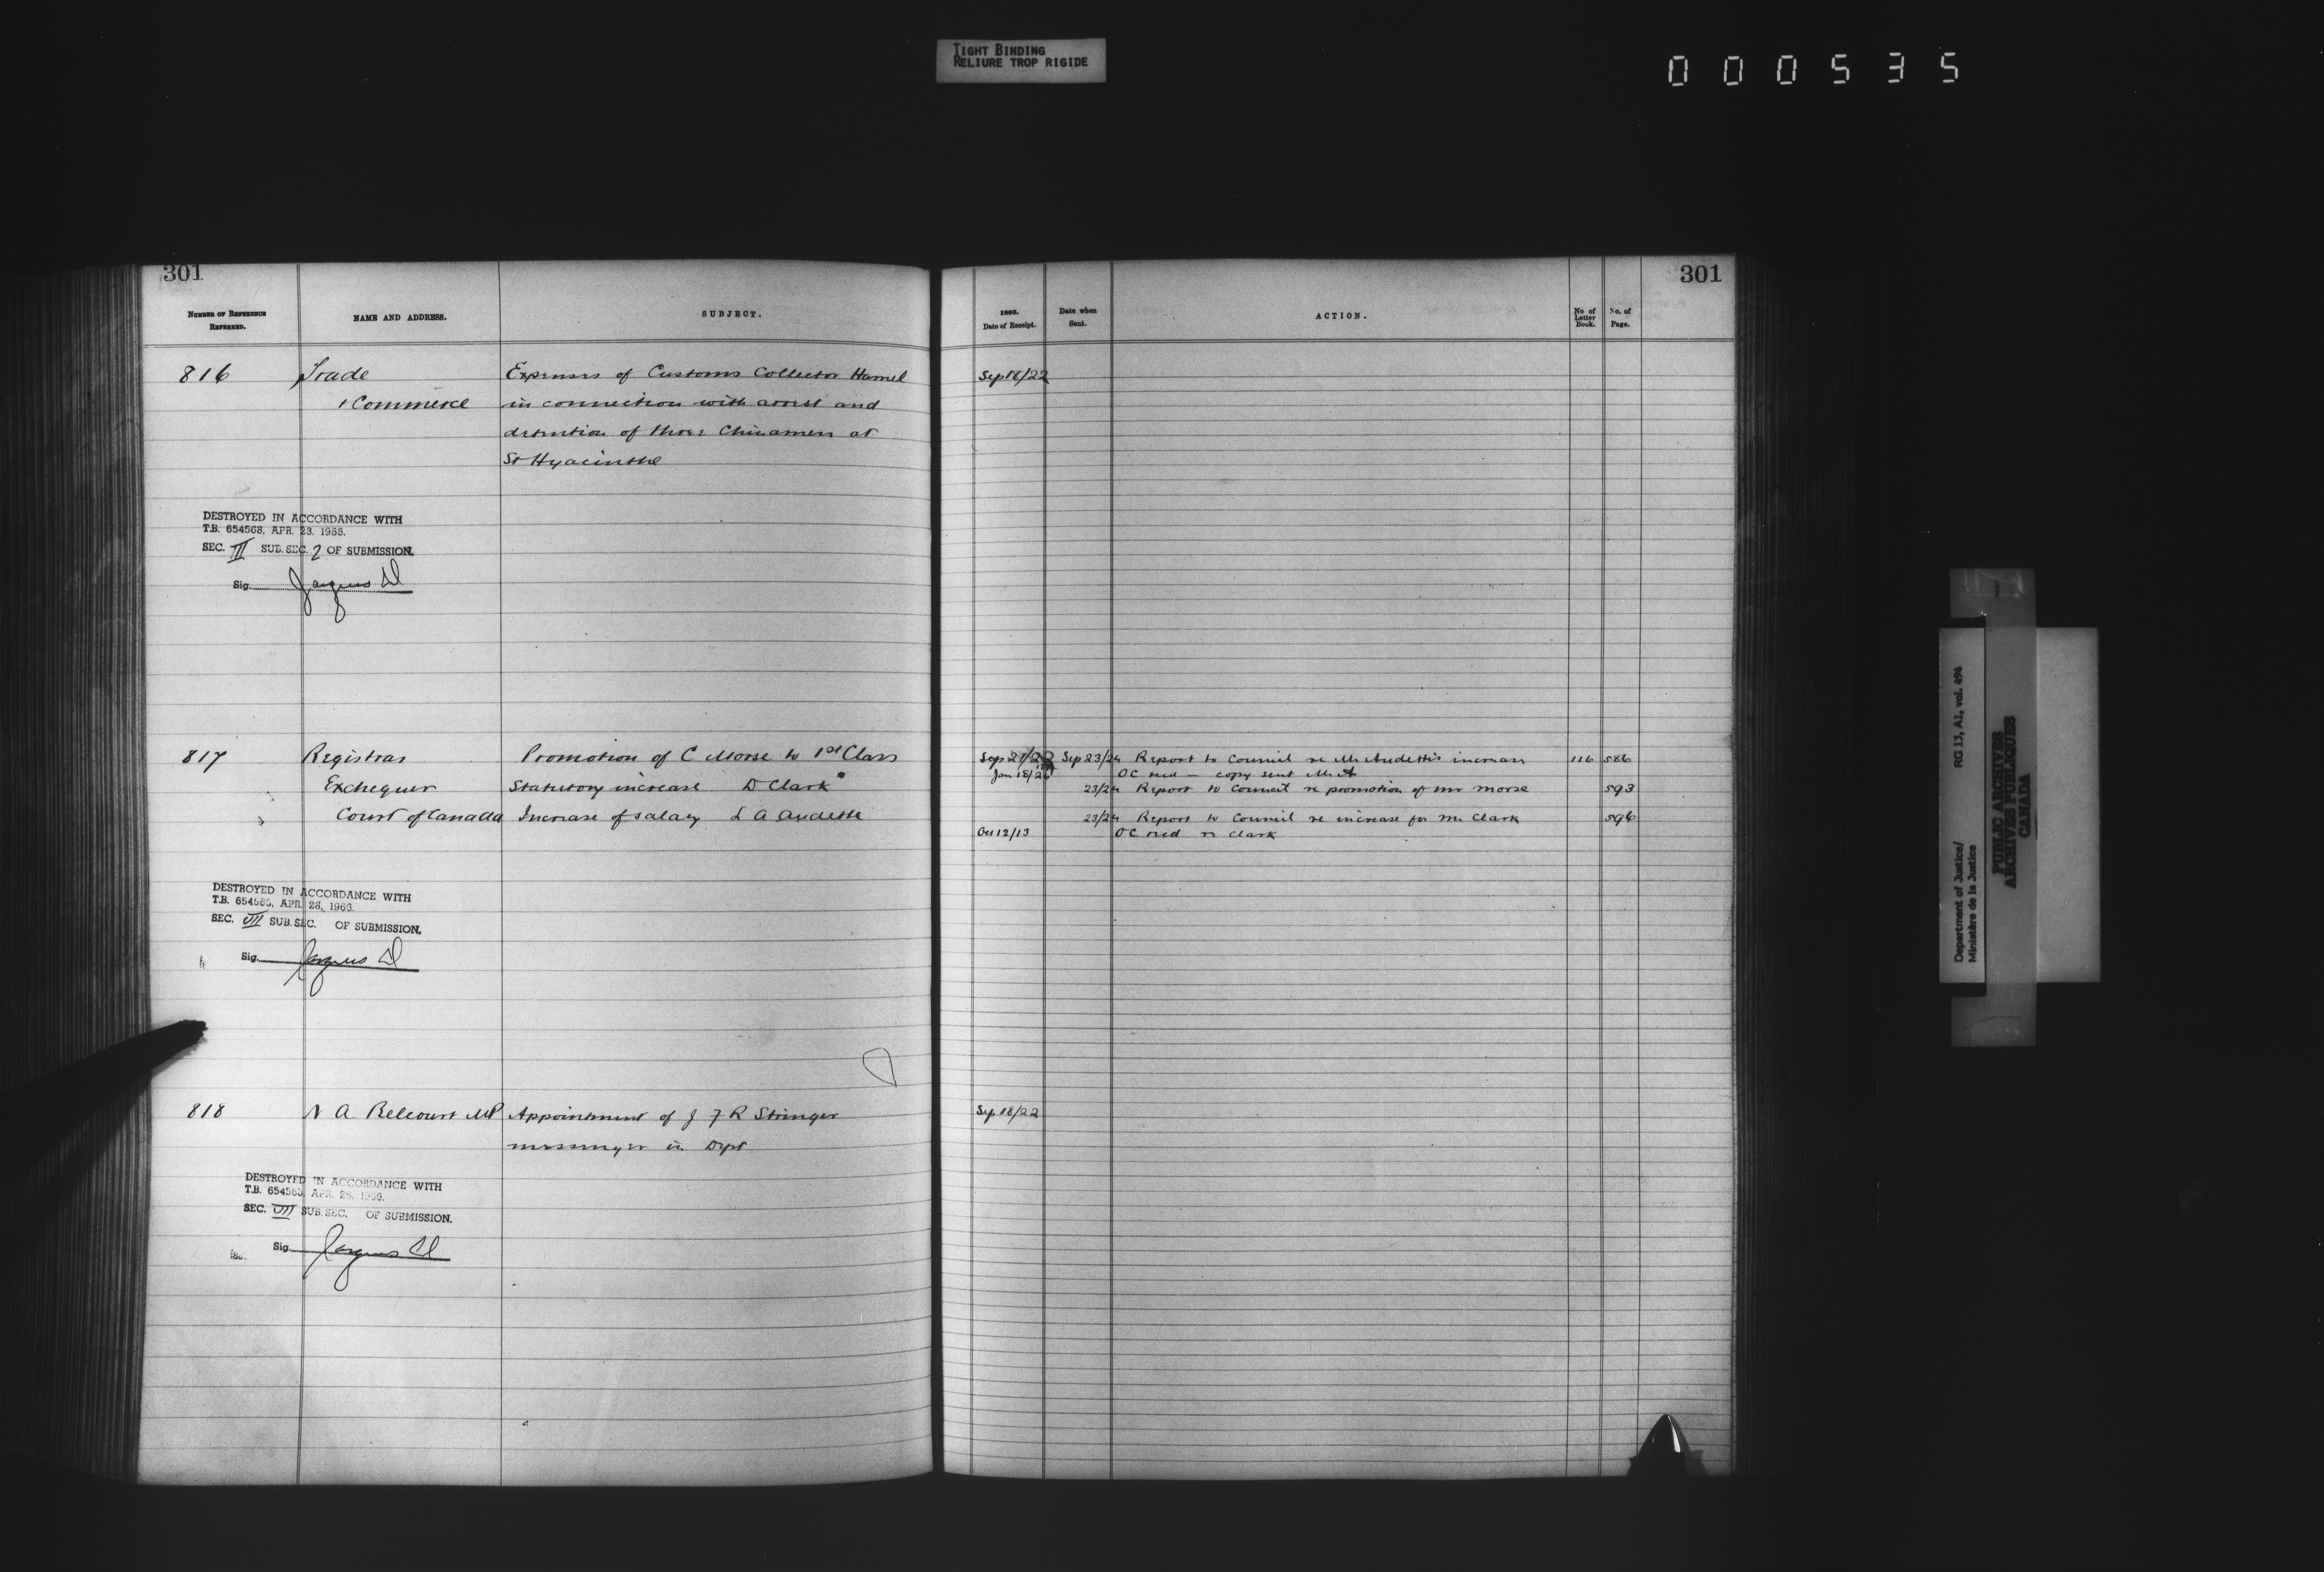 TIGHT BINDING
RELIURE TROP RIGIDE
000535
301
NUMBER OF REFERENCE REFERRED.
NAME AND ADDRESS.
SUBJECT.
816
Trade
+ Commerce
Expenses of Customs Collector Hamel
in connection with arrest and
detention of three Chinamen at
St Hyacinthe
DESTROYED IN ACCORDANCE WITH
T.B. 654568, APR. 23, 1966.
SEC. III SUB. SEC. 2 OF SUBMISSION.
Sig.
817
Registrar
Exchequer
Court of Canada
Promotion of C Morse to 1st Class
Statutory increase D Clark
Increase of salary L A Audette
DESTROYED IN ACCORDANCE WITH
T.B. 654563, APR. 28, 1966.
SEC. VII SUB. SEC. OF SUBMISSION.
Sig.
818
N A Belcourt MP
Appointment of J F R Stringer
messenger in Dept
DESTROYED IN ACCORDANCE WITH
T.B. 654563, APR. 28, 1966.
SEC. VII SUB. SEC. OF SUBMISSION.
Sig.
301
Date of Receipt.
Date when Sent.
ACTION.
No of Letter Book.
No. of Page.
Sep 18/22
Sep 21/22 Sep 23/24 Report to Council re Mr Audette's increase 116 586
Jan 18/26 OC recd — copy sent Mr A
23/24 Report to Council re promotion of Mr Morse 593
23/24 Report to Council re increase for Mr Clark 596
Oct 12/13 OC recd re Clark
Sep 18/22
Department of Justice/ RG 13, A1, vol. 494
Ministère de la Justice
PUBLIC ARCHIVES
ARCHIVES PUBLIQUES
CANADA